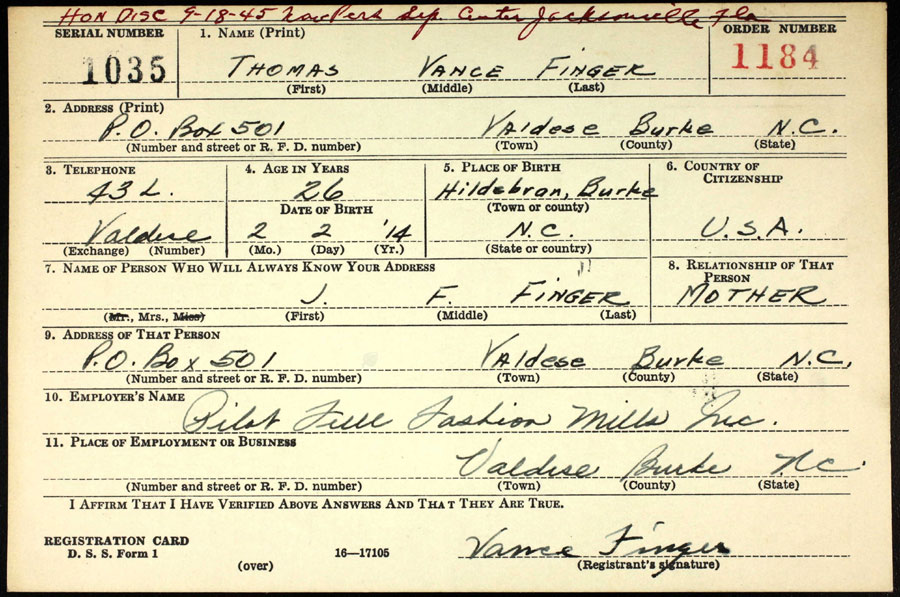 HON DISC 9-18-45 Nav Pers Sep. Center Jacksonville Fla
SERIAL NUMBER 1. NAME (Print) ORDER NUMBER
1035 THOMAS VANCE FINGER 1184
(First) (Middle) (Last)
2. ADDRESS (Print)
P.O. Box 501 Valdese Burke N.C.
(Number and street or R. F. D. number) (Town) (County) (State)
3. TELEPHONE 4. AGE IN YEARS 5. PLACE OF BIRTH 6. COUNTRY OF CITIZENSHIP
43 L. 26 Hildebran, Burke
DATE OF BIRTH (Town or county)
Valdese 2 2 '14 N.C. U.S.A.
(Exchange) (Number) (Mo.) (Day) (Yr.) (State or country)
7. NAME OF PERSON WHO WILL ALWAYS KNOW YOUR ADDRESS 8. RELATIONSHIP OF THAT PERSON
J. F. FINGER MOTHER
(Mr., Mrs., Miss) (First) (Middle) (Last)
9. ADDRESS OF THAT PERSON
P.O. Box 501 Valdese Burke N.C.
(Number and street or R. F. D. number) (Town) (County) (State)
10. EMPLOYER'S NAME
Pilot Full Fashion Mills Inc.
11. PLACE OF EMPLOYMENT OR BUSINESS
Valdese Burke N.C.
(Number and street or R. F. D. number) (Town) (County) (State)
I AFFIRM THAT I HAVE VERIFIED ABOVE ANSWERS AND THAT THEY ARE TRUE.
REGISTRATION CARD
D. S. S. Form 1 16—17105 Vance Finger
(over) (Registrant's signature)